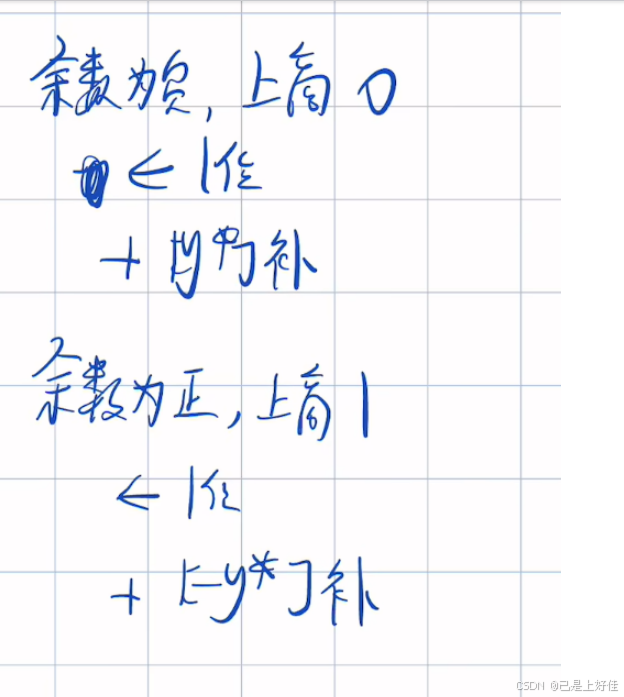 余数为负，上商 0
← 1位
+ [y*]补
余数为正，上商 1
← 1位
+ [-y*]补
CSDN @己是上好佳